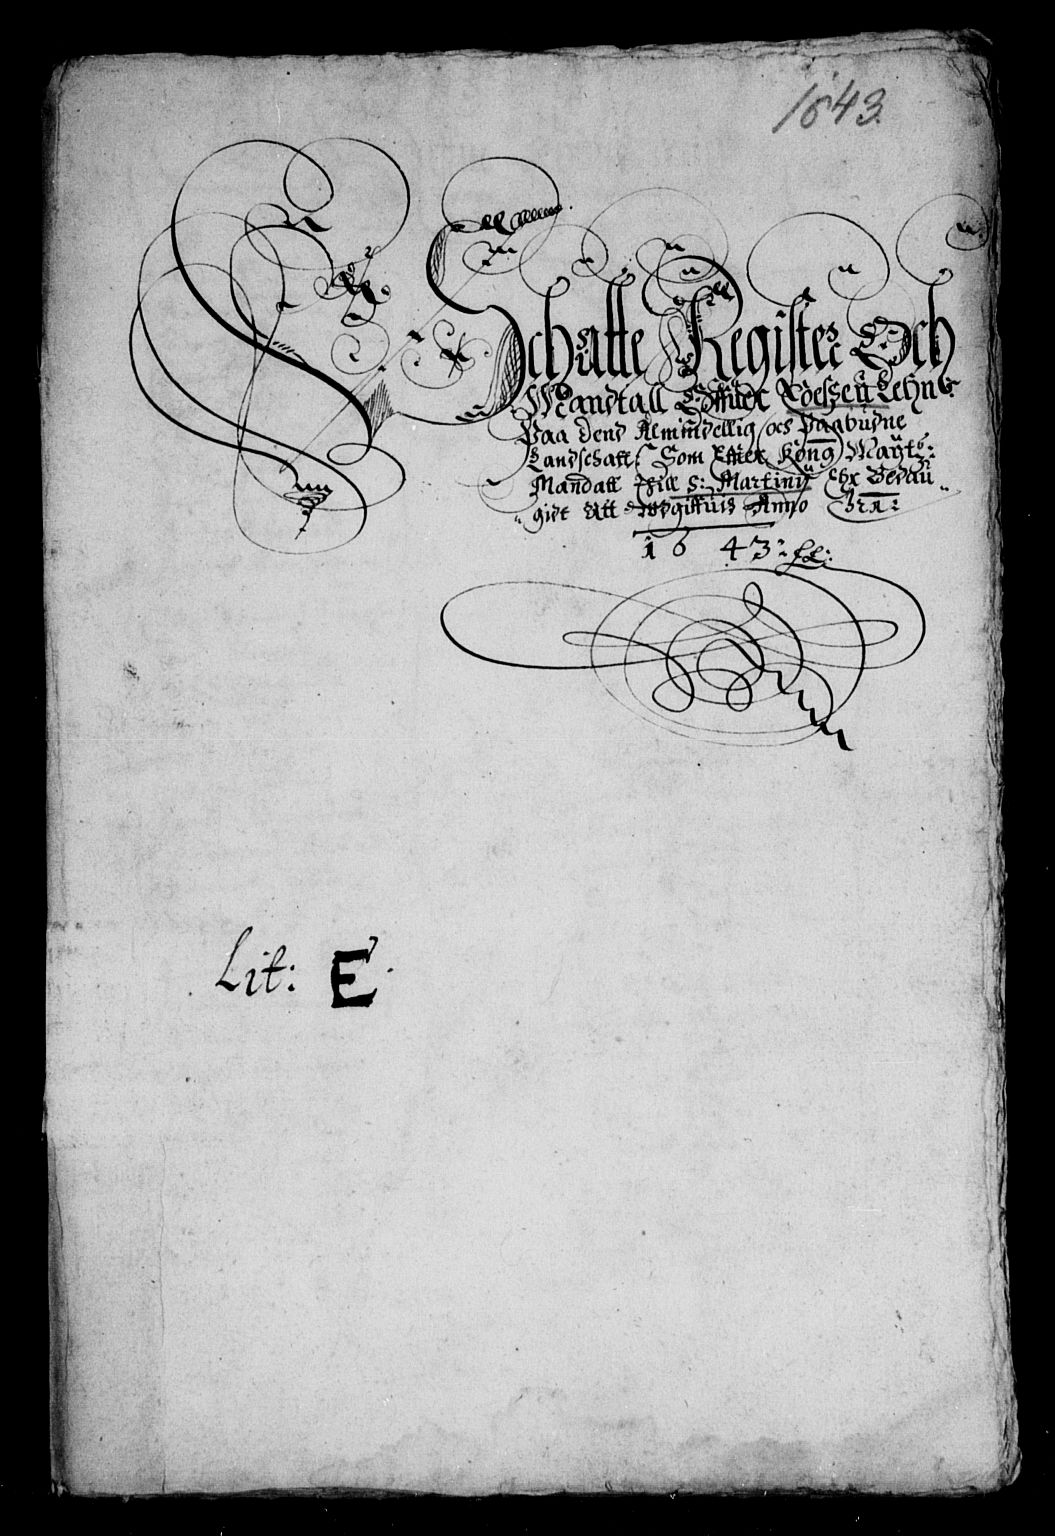 1643.
Schatte Register Och
Mandtall Offuer Roeszen Lehns
Paa dend Almindellig och Paabudne
Landschatt: Som Effter Kong: Maytz:
Mandatt Thil S: Martinij Er Bevil
giet Att Udgiffuis Anno
1643:
Lit: E.